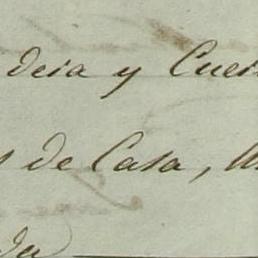 deia y Cuer
de Casa,
da